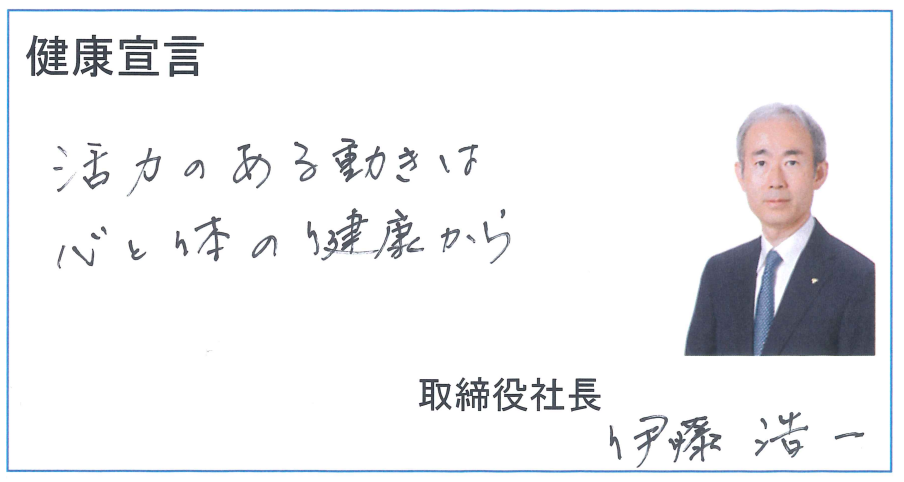 健康宣言
活力のある動きは
心と体の健康から
取締役社長
伊藤 浩一